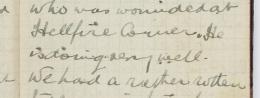 who was wounded at
Hellfire Corner. He
is doing very well.
We had a rather rotten